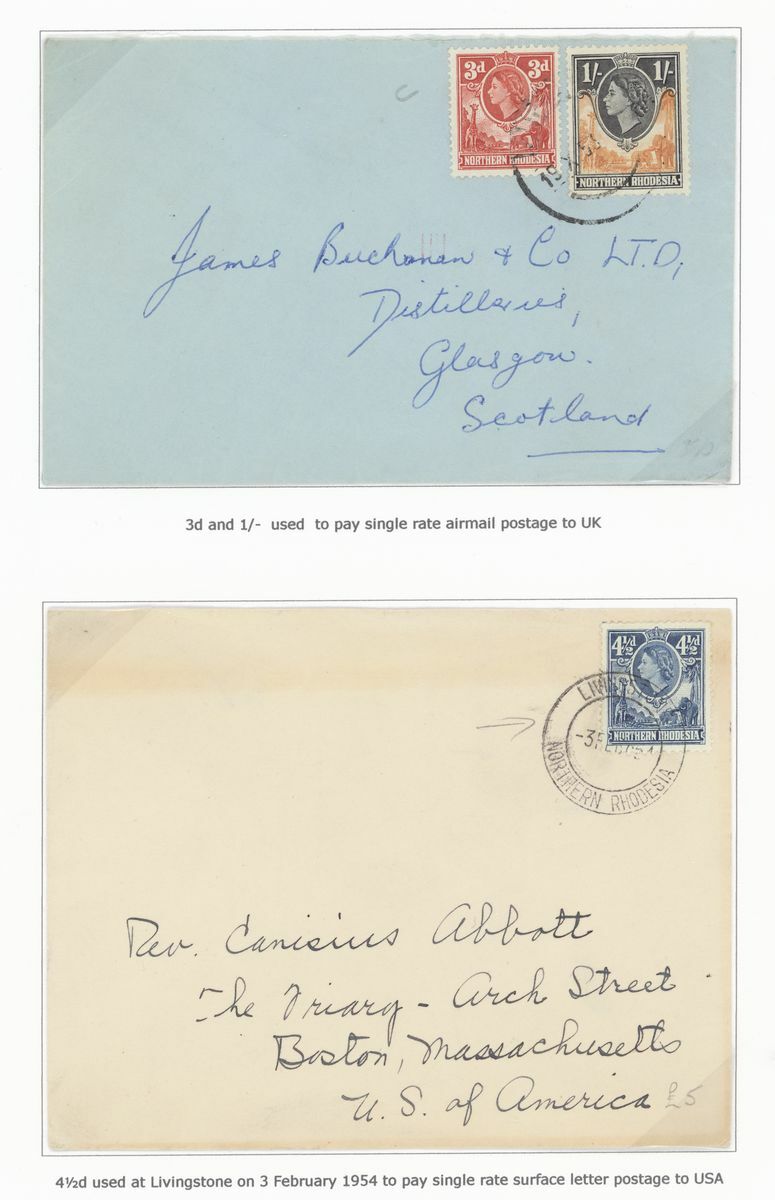 3d 3d
NORTHERN RHODESIA
1/- 1/-
NORTHERN RHODESIA
19
James Buchanan & Co LT.D,
Distilleries,
Glasgow.
Scotland
3d and 1/- used to pay single rate airmail postage to UK
4½d 4½d
NORTHERN RHODESIA
-3 FEB
NORTHERN RHODESIA
Rev. Canisius Abbott
The Friary - Arch Street
Boston, Massachusetts
U.S. of America £5
4½d used at Livingstone on 3 February 1954 to pay single rate surface letter postage to USA